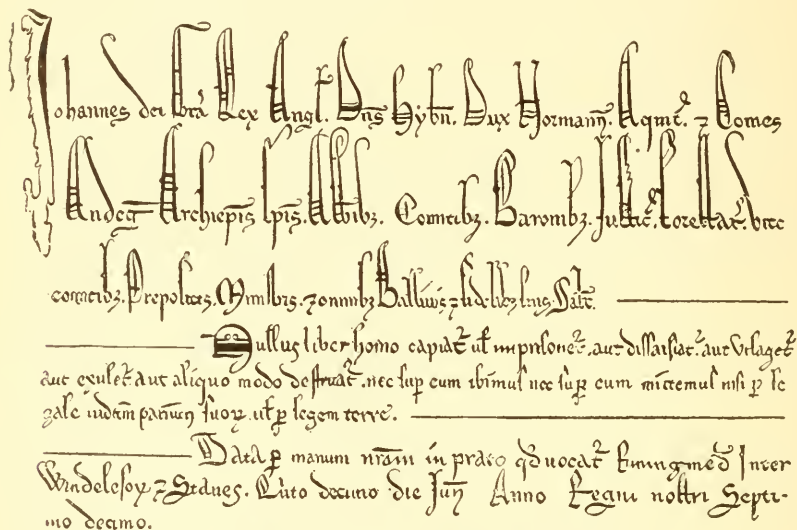 Johannes dei Gr̃a Rex Angl̃. Dñs Hyb̃n. Dux Normanñ. Aqƚt̃. ⁊ Comes
Andeg̃ Archiep̃is Ep̃is. Abb̃ibꝫ. Comitibꝫ. Baronibꝫ. Justic̃. Forestar̃. vice
comitibꝫ. Prepositis. Ministris. ⁊ omnibꝫ Ballivis ⁊ fidelibꝫ suis. Salt̃.
Nullus liber homo capiat᷑ ul̃ imprisonet᷑. aut dissaisiat᷑. aut Utlaget᷑
aut exulet᷑ aut aliquo modo destruat᷑. nec sup eum ibimus nec sup eum mittemus nisi ꝑ le
gale iudiciũ pariũ suoꝝ. ul̃ ꝑ legem terre.
Data ꝑ manum nr̃am in prato qd̃ vocat᷑ Runingmed̃ Inter
Windelesoꝝ ⁊ Stanes. Quto decimo die Juñ Anno Regni nostri Septi-
mo decimo.